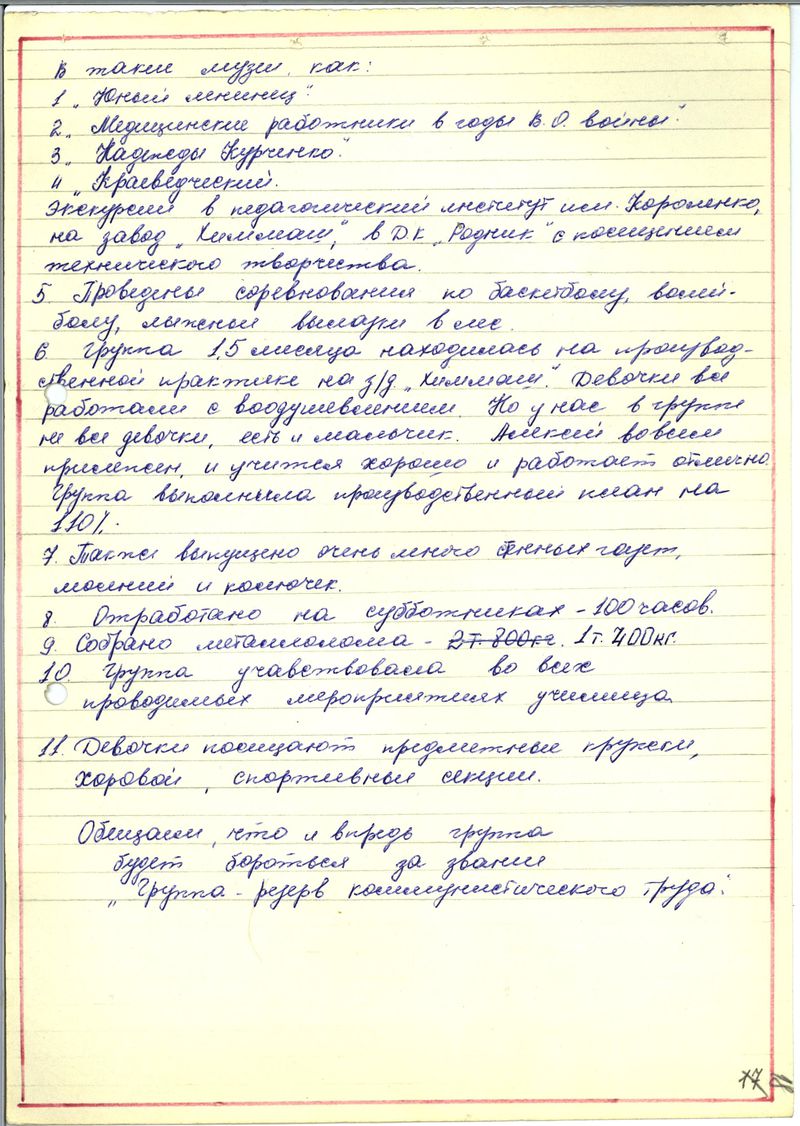 В такие музеи, как:
1 „Юный ленинец".
2 „Медицинские работники в годы В.О. войны".
3 „Надежды Курченко".
4 „Краеведческий.
Экскурсии в педагогический институт им. Короленко,
на завод „Химмаш", в ДК „Родник" с посещением
технического творчества.
5 Проведены соревнования по баскетболу, волей-
болу, лыжной вылазки в лес.
6. Группа 1,5 месяца находилась на производ-
ственной практике на з/д „Химмаш". Девочки все
работали с воодушевлением. Но у нас в группе
не все девочки, есть и мальчик. Алексей вовсем
прилежен, и учится хорошо и работает отлично.
Группа выполныла производственный план на
110%.
7. Также выпущено очень много стенных газет,
молний и колючек.
8. Отработано на субботниках - 100 часов.
9. Собрано металлолома - 2т. 800кг. 1т. 400кг.
10. Группа учавствовала во всех
проводимых мероприятиях училища.
11. Девочки посещают предметные кружки,
хоровой, спортивные секции.
Обещаем, что и впредь группа
будет бороться за звание
„Группа - резерв коммунистического труда".
17